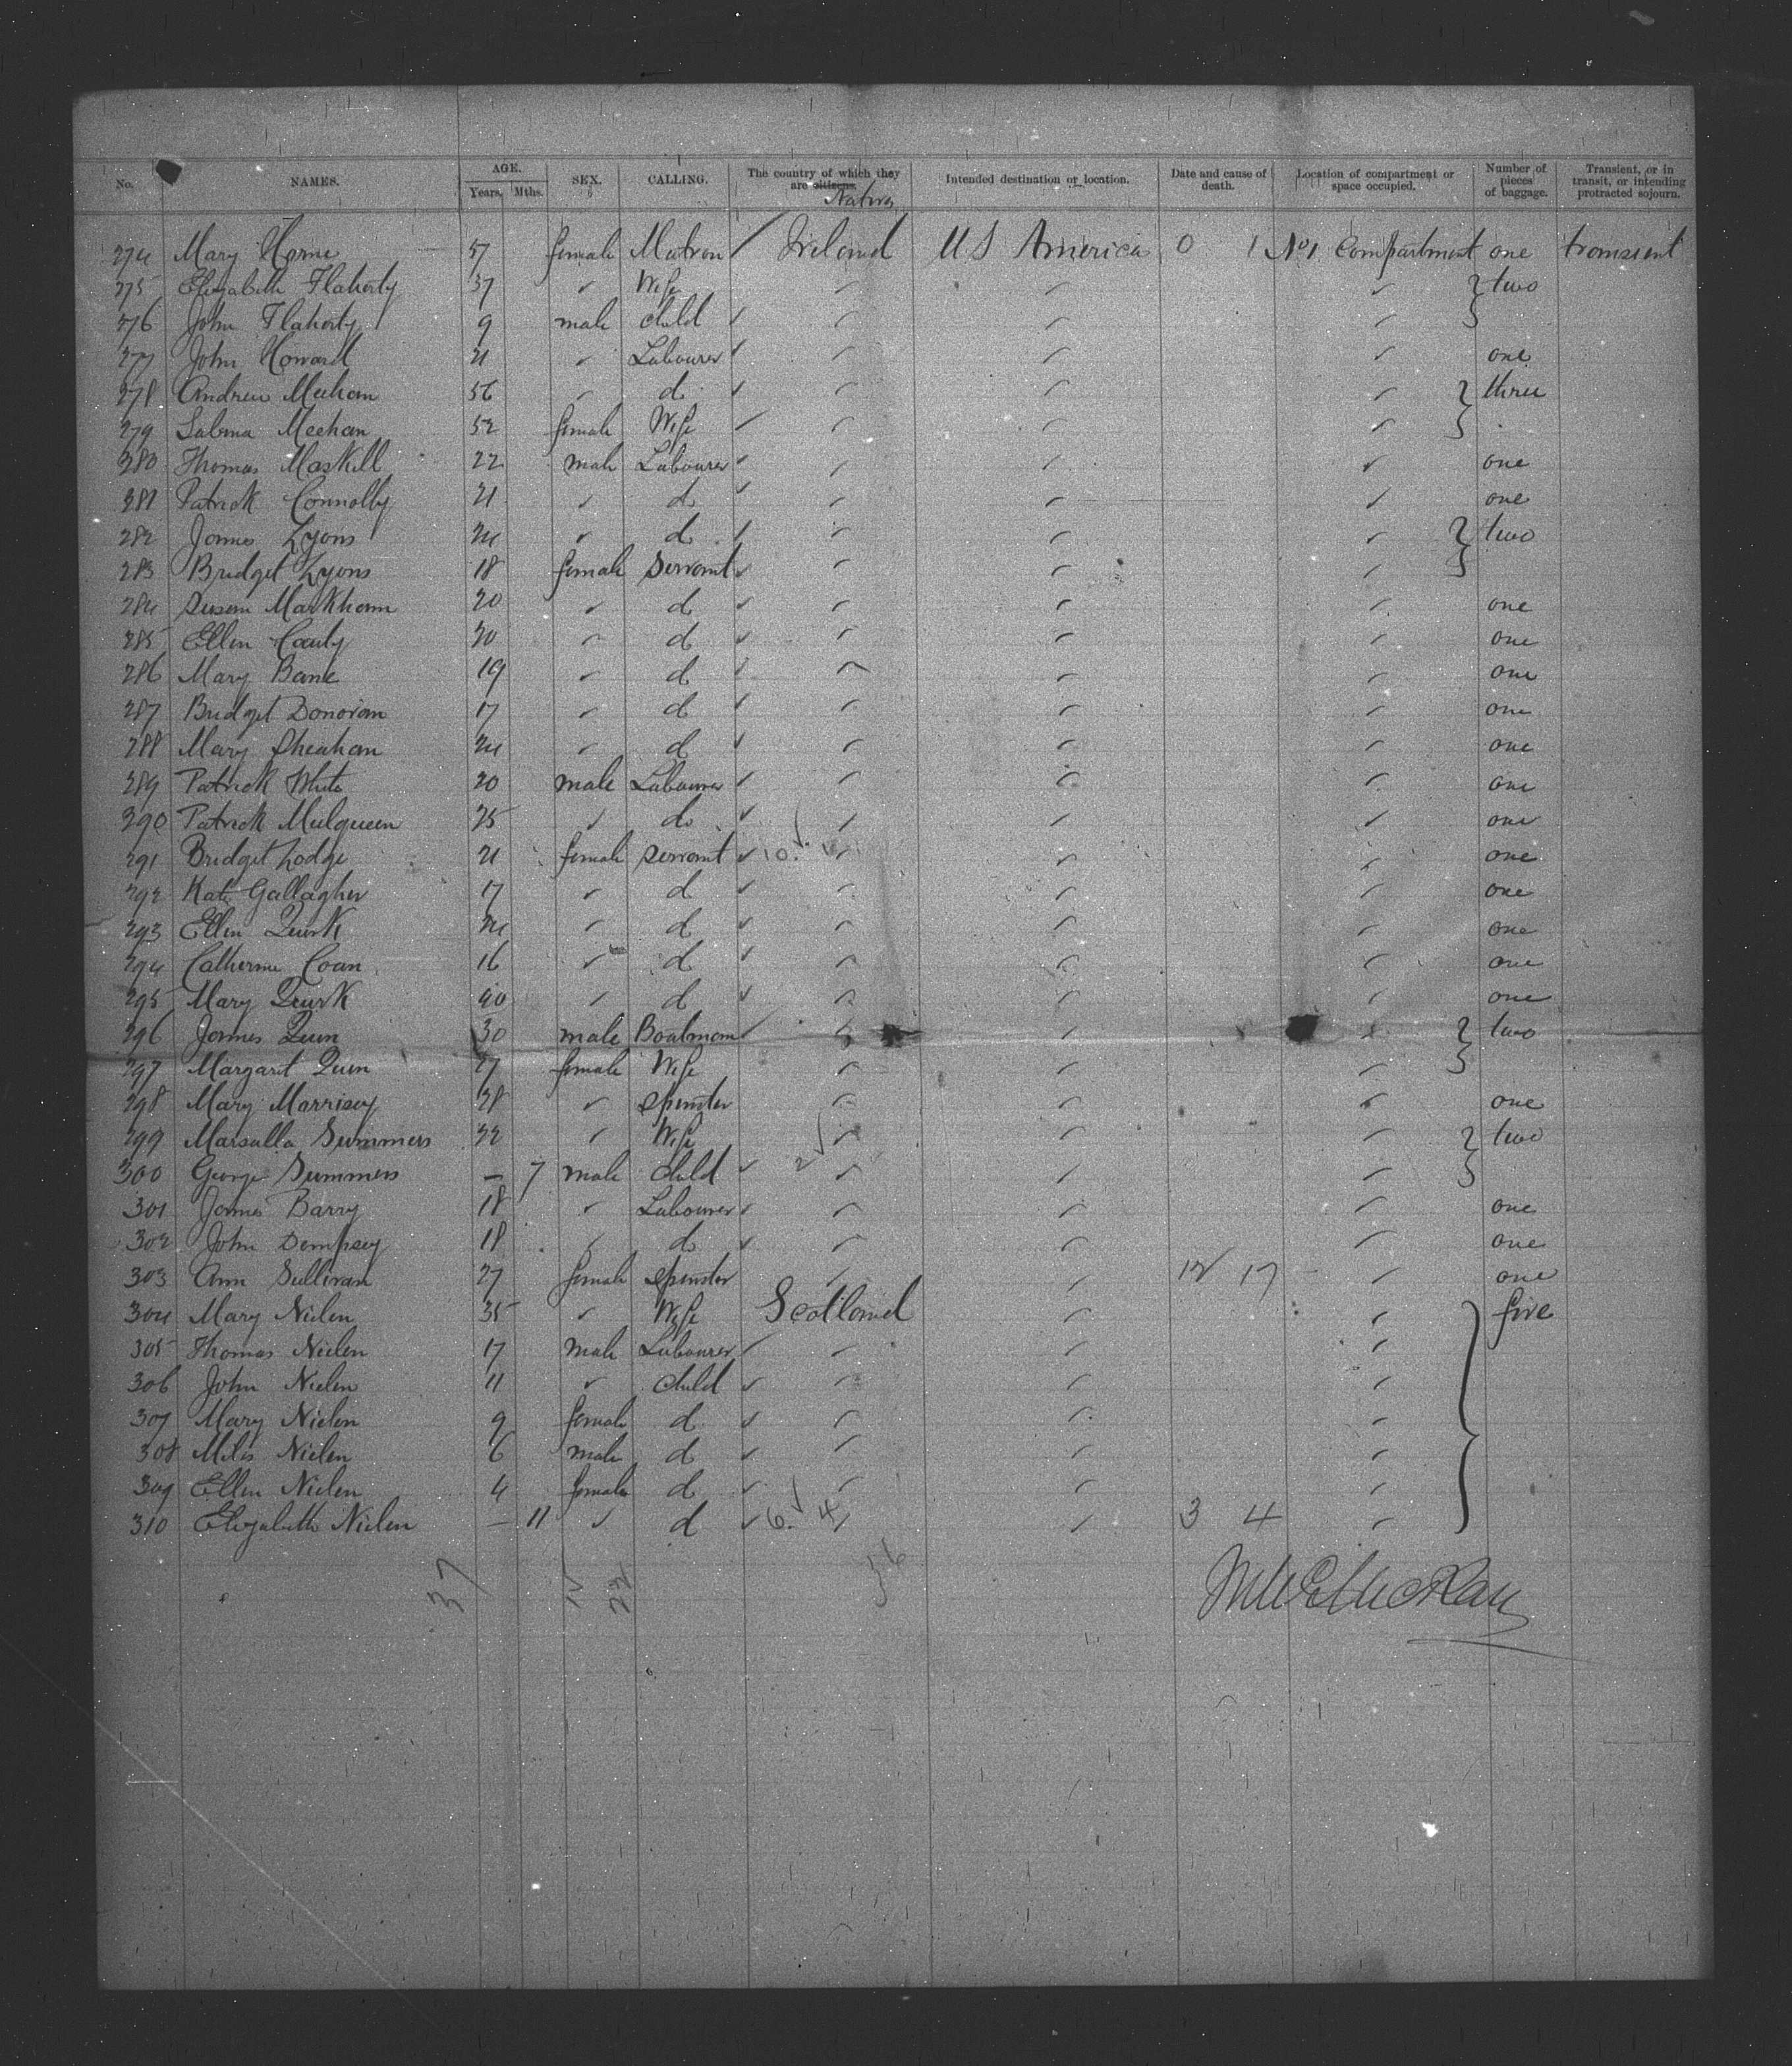 No. NAMES. AGE. Years. Mths. SEX. CALLING. The country of which they are citizens. Natives Intended destination or location. Date and cause of death. Location of compartment or space occupied. Number of pieces of baggage. Transient, or in transit, or intending protracted sojourn.
274 Mary Horne 57 female Matron Ireland U S America 0 1 No 1 Compartment one transient
275 Elizabeth Flaherty 37 " Wife " " " two
276 John Flaherty 9 male child " " "
277 John Howard 21 " Labourer " " " one
278 Andrew Meehan 56 " do " " " three
279 Sabina Meehan 52 female Wife " " "
280 Thomas Maskill 22 male Labourer " " " one
281 Patrick Connolly 21 " do " " " one
282 James Lyons 24 " do " " " two
283 Bridget Lyons 18 female Servant " " "
284 Susan Markham 20 " do " " " one
285 Ellen 20 " do " " " one
286 Mary Bane 19 " do " " " one
287 Bridget Donovan 17 " do " " " one
288 Mary Sheahan 24 " do " " " one
289 Patrick White 20 male Labourer " " " one
290 Patrick Mulqueen 25 " do " " " one
291 Bridget Lodge 21 female Servant 10 " " " one
292 Kate Gallagher 17 " do " " " one
293 Ellen Quirk 24 " do " " " one
294 Catherine Coan 16 " do " " " one
295 Mary Quirk 40 " do " " " one
296 James Quin 30 male Boatman " " " two
297 Margaret Quin 27 female Wife " " "
298 Mary Morrisey 28 " Spinster " " " one
299 Marsella Summers 22 " Wife " " " two
300 George Summers — 7 male child 2 " " "
301 James Barry 18 " Labourer " " " one
302 John Dempsey 18 " do " " " one
303 Ann Sullivan 27 female Spinster " " 12 17 " one
304 Mary Nielen 35 " Wife Scotland " " five
305 Thomas Nielen 17 male Labourer " " "
306 John Nielen 11 " child " " "
307 Mary Nielen 9 female do " " "
308 Miles Nielen 6 male do " " "
309 Ellen Nielen 4 female do " " "
310 Elizabeth Nielen — 11 " do 6 4 " " 3 4 "
37 15 22 36